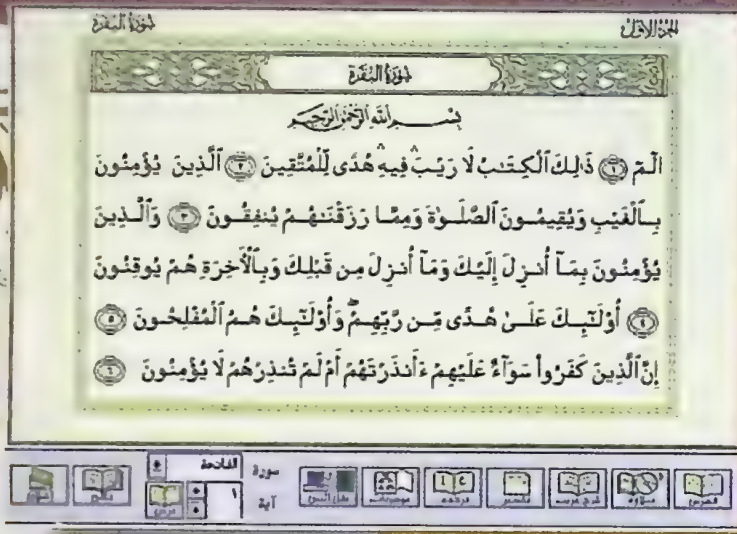 الجزء الأول
سورة البقرة
سورة البقرة
بسم الله الرحمن الرحيم
الٓمٓ ١ ذَٰلِكَ ٱلْكِتَٰبُ لَا رَيْبَ ۛ فِيهِ ۛ هُدًى لِّلْمُتَّقِينَ ٢ ٱلَّذِينَ يُؤْمِنُونَ
بِٱلْغَيْبِ وَيُقِيمُونَ ٱلصَّلَوٰةَ وَمِمَّا رَزَقْنَٰهُمْ يُنفِقُونَ ٣ وَٱلَّذِينَ
يُؤْمِنُونَ بِمَآ أُنزِلَ إِلَيْكَ وَمَآ أُنزِلَ مِن قَبْلِكَ وَبِٱلْأَخِرَةِ هُمْ يُوقِنُونَ
٤ أُوْلَٰٓئِكَ عَلَىٰ هُدًى مِّن رَّبِّهِمْ ۖ وَأُوْلَٰٓئِكَ هُمُ ٱلْمُفْلِحُونَ ٥
إِنَّ ٱلَّذِينَ كَفَرُوا۟ سَوَآءٌ عَلَيْهِمْ ءَأَنذَرْتَهُمْ أَمْ لَمْ تُنذِرْهُمْ لَا يُؤْمِنُونَ ٦
سورة الفاتحة
آية ١
فهرس تفسير ترجمة موضوعات